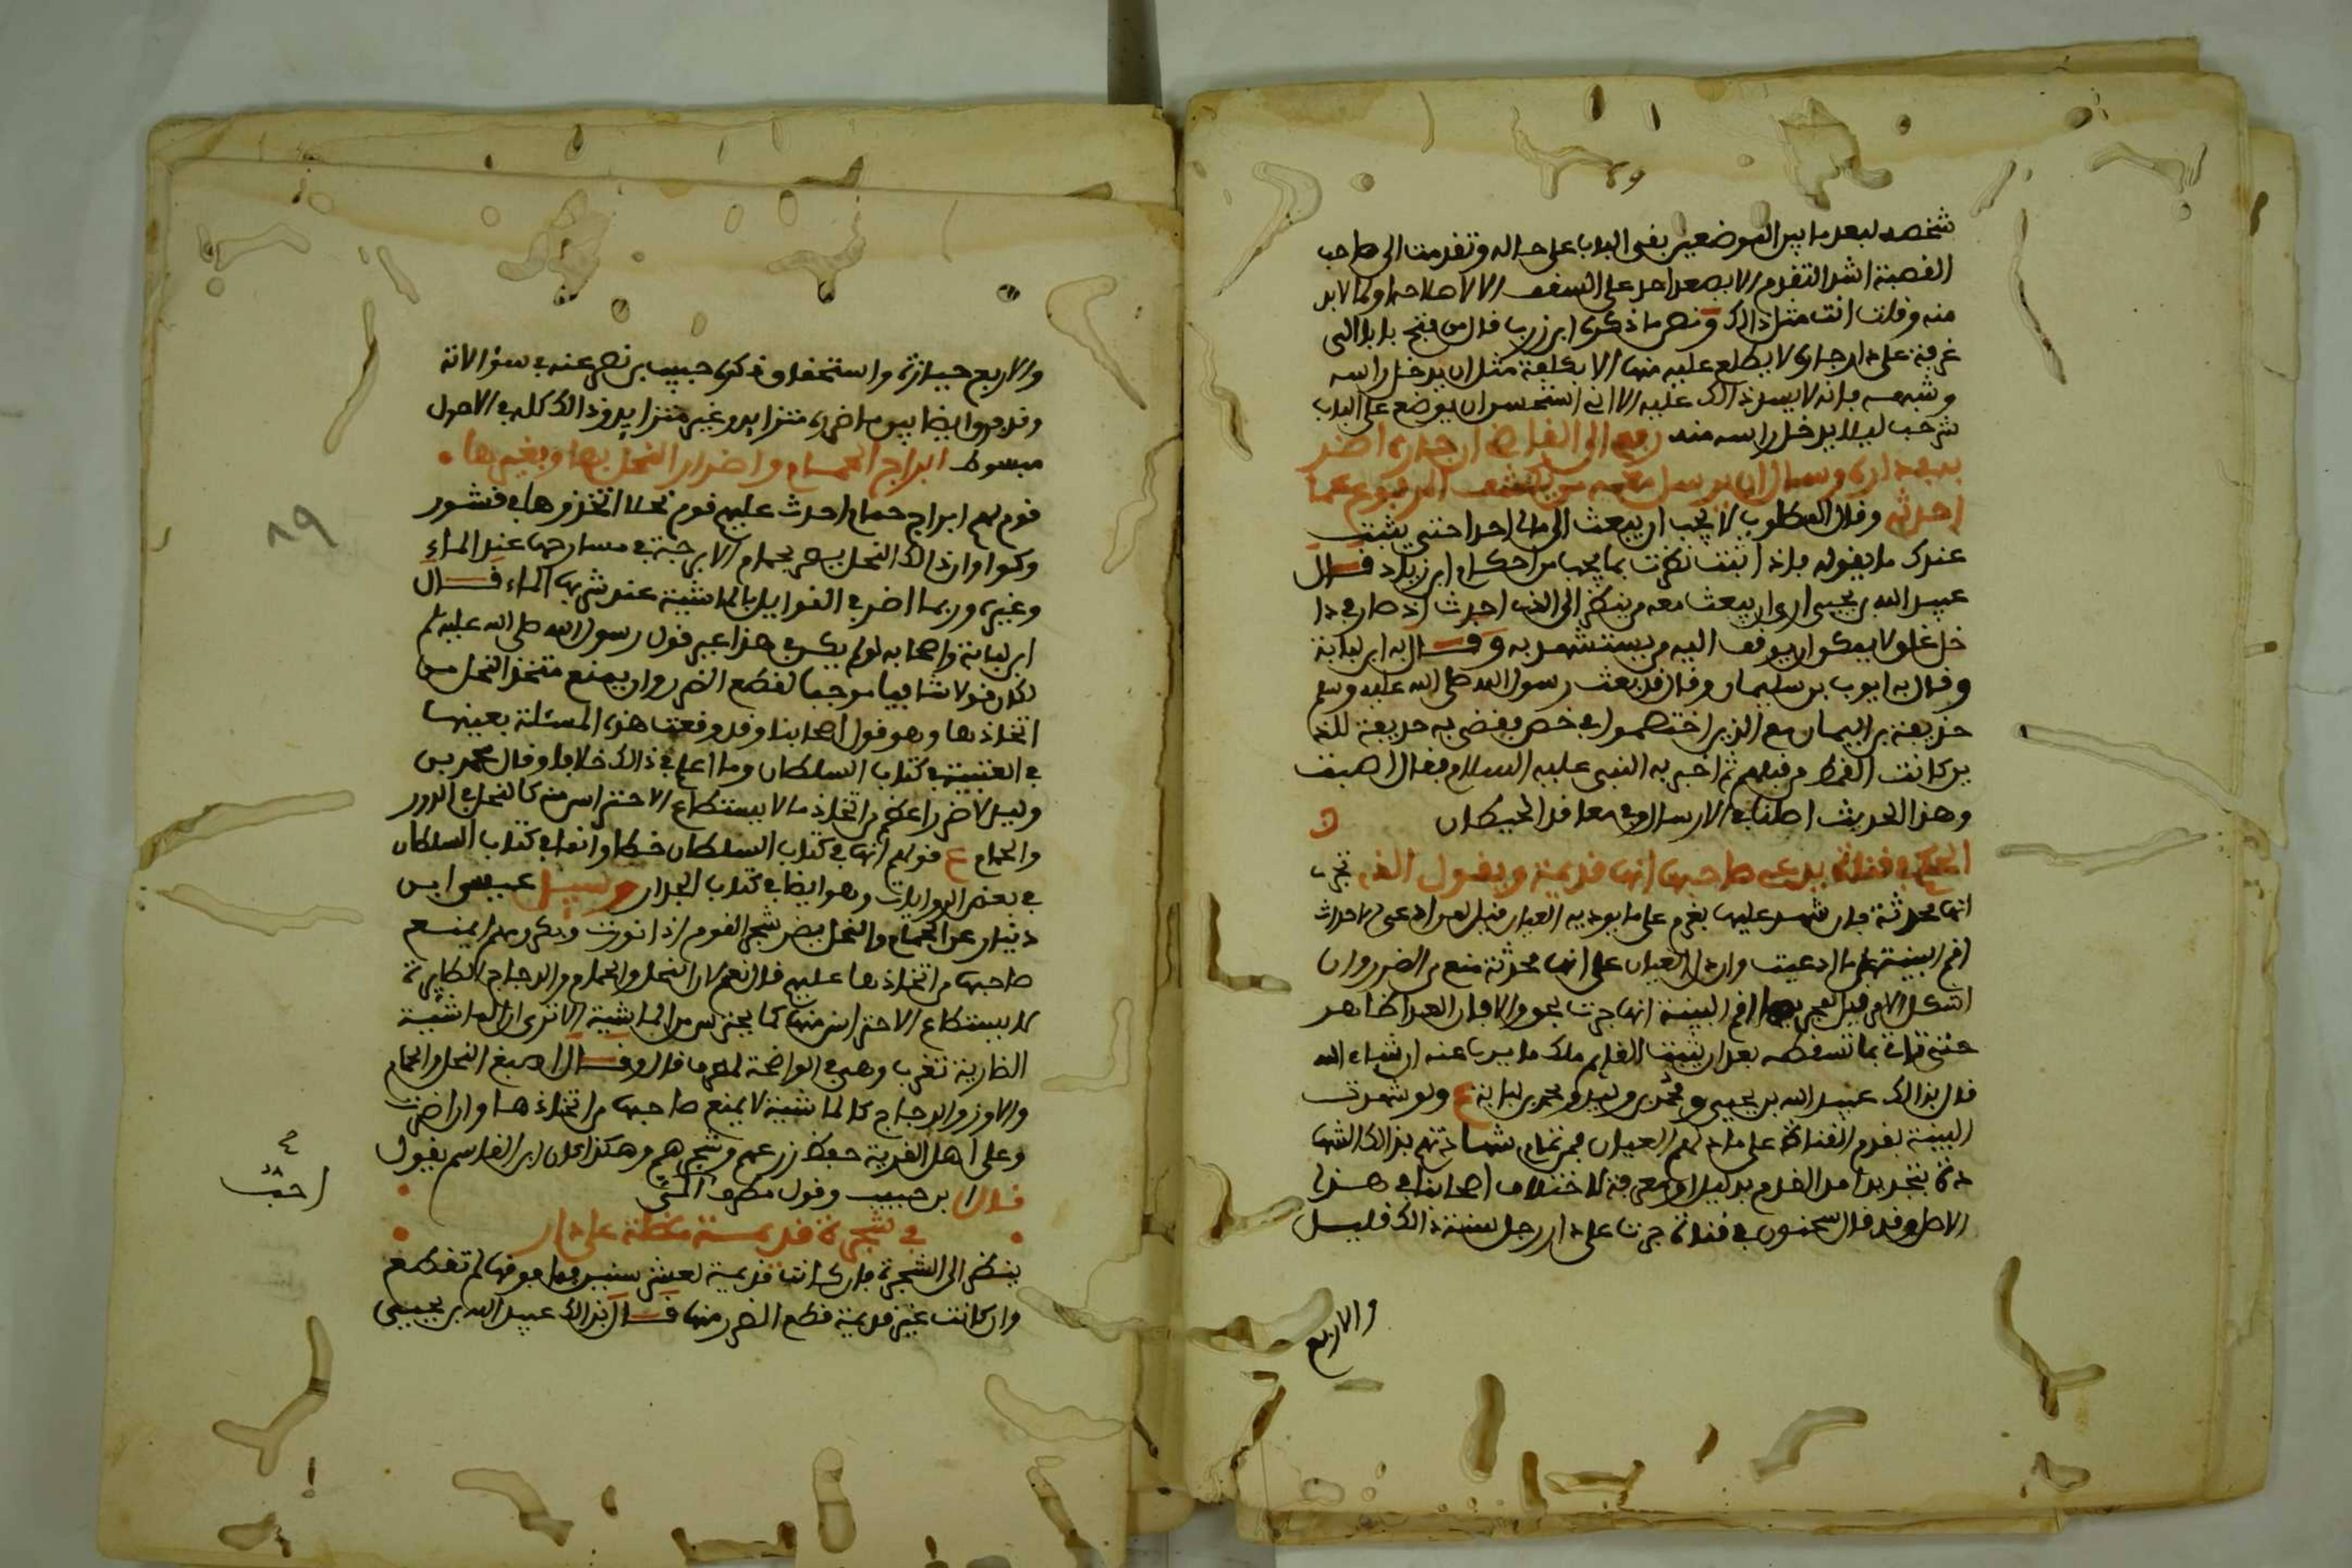 شخصه لبعد ما بين الموضعين بقى الباب على حاله وتقدمت الى صاحب
القصبة اشد التقدم الا يصعد احد على السقف الا لاصلاحه او لما لا بد
منه وقلت انت مثل ذالك ونص ما ذكره ابن زرب قال من فتح بابا الى
غرفة على دار جاره لا يطلع عليه منها الا بكلفة مثل ان يدخل راسه
وشبهه فانه لا يسد ذالك عليه الا اني استحسن ان يوضع على الباب
شرجب ليلا يدخل راسه منه رفع الى القاضي ان جاره اضر
به في داره وسال ان يرسل معه من يكشف المرفوع عما
احدثه وقال المطلوب لا يجب ان يبعث الى مالي احدا حتى يثبت
عندك ما يقوله فاذا اثبت نظرت بما يجب من احكام ابن زياد قال
عبيد الله بن يحيى ارى ان يبعث معه من ينظر الى الذي احدث اذ صار في دا
خل غلق لا يمكن ان يوقف اليه من يستشهد به وقال به ابن لبابة
وقال به ايوب بن سليمان وقال قد بعث رسول الله صلى الله عليه وسلم
حذيفة بن اليمان مع الذين اختصموا في خص فقضى به حذيفة للذ
ين كانت القمط من قبلهم ثم اخبر به النبي عليه السلام فقال اصبت
وهذا الحديث اصلنا في الارسال وفي معاقد الحيطان
الحكم في قناة يدعي صاحبها انها قديمة ويقول الذي تجري
انها محدثة فان شهد عليها بغرم على ما يوديه العيان قيل لمن ادعى الاحداث
اقم البينة على ما ادعيت وان دل العيان على انها محدثة منع من الضرر وان
اشكل الامر قيل لمجريها اقم البينة انها جرت بحق والا فان العدا ظاهر
حتى تاتي بما تسقطه بعد ان يثبت القايم ملك ما يريبا عنه ان شاء الله
قال بذالك عبيد الله بن يحيى ومحمد بن وليد ومحمد بن لبابة ع ولو شهدت
البينة بقدم القناة على ما دلهم العيان فمن تمام شهادتهم بذالك الشها
دة بتحديد امد القدم بدليل او معرفة لاختلاف اصحابنا في هذا
الاصل وقد قال سحنون في قناة جرت على دار رجل سنة ذالك قليل
والاربع
والاربع حيازة واستحقاق ذكره حبيب بن نصر عنه في سؤالاته
وفرقوا ايضا بين ما ضرره متزايد وغير متزايد وذالك كله في الاصول
مبسوط ابراج الحمام واضرار النحل بها وبغيرها
قوم لهم ابراج حمام احدث عليهم قوم نحلا اتخذوها في قشور
وكوا وان ذالك النحل يضر بحمام الابرجة في مسارحها عند الماء
وغيره وربما اضر في القوايل بالماشية عند شربها الماء قال
ابن لبابة واصحابه لو لم يكن في هذا غير قول رسول الله صلى الله عليه وسلم
لكان قولا شافيا موجبا لقطع الضرر وان يمنع متخذ النحل من
اتخاذها وهو قول اصحابنا وقد وقعت هذه المسئلة بعينها
في العتبية في كتاب السلطان وما اعلم في ذالك خلافا وقال محمد بن
وليد لا ضر اعظم من اتخاذ ما لا يستطاع الاحتراس منه كالنحل في الدور
والحمام ع قولهم انها في كتاب السلطان خطا وانما في كتاب السلطان
في بعض الروايات وهو ايضا في كتاب الجدار وسيل عيسى ابن
دينار عن الحمام والنحل يضر شجر القوم اذا نورت وبكرومهم ايمنع
صاحبها من اتخاذها عليهم قال نعم لان النحل والحمام والدجاج الطايرة
لا يستطاع الاحتراس منها كما يحترس من الماشية الا ترى ان الماشية
الضارية تغرب وهي في الواضحة لمطرف قال وقال اصبغ النحل والحمام
والاوز والدجاج كالماشية لا يمنع صاحبها من اتخاذها وان اضرت
وعلى اهل القرية حفظ زرعهم وشجرهم وهكذا كان ابن القاسم يقول
قال ابن حبيب وقول مطرف الى
احب
في شجرة قديمة مظلة على دار
ينظر الى الشجرة فان كانت قديمة لعشر سنين فما فوقها لم تقطع
وان كانت غير قديمة قطع الضرر منها قال بذالك عبيد الله بن يحيى
٨٩